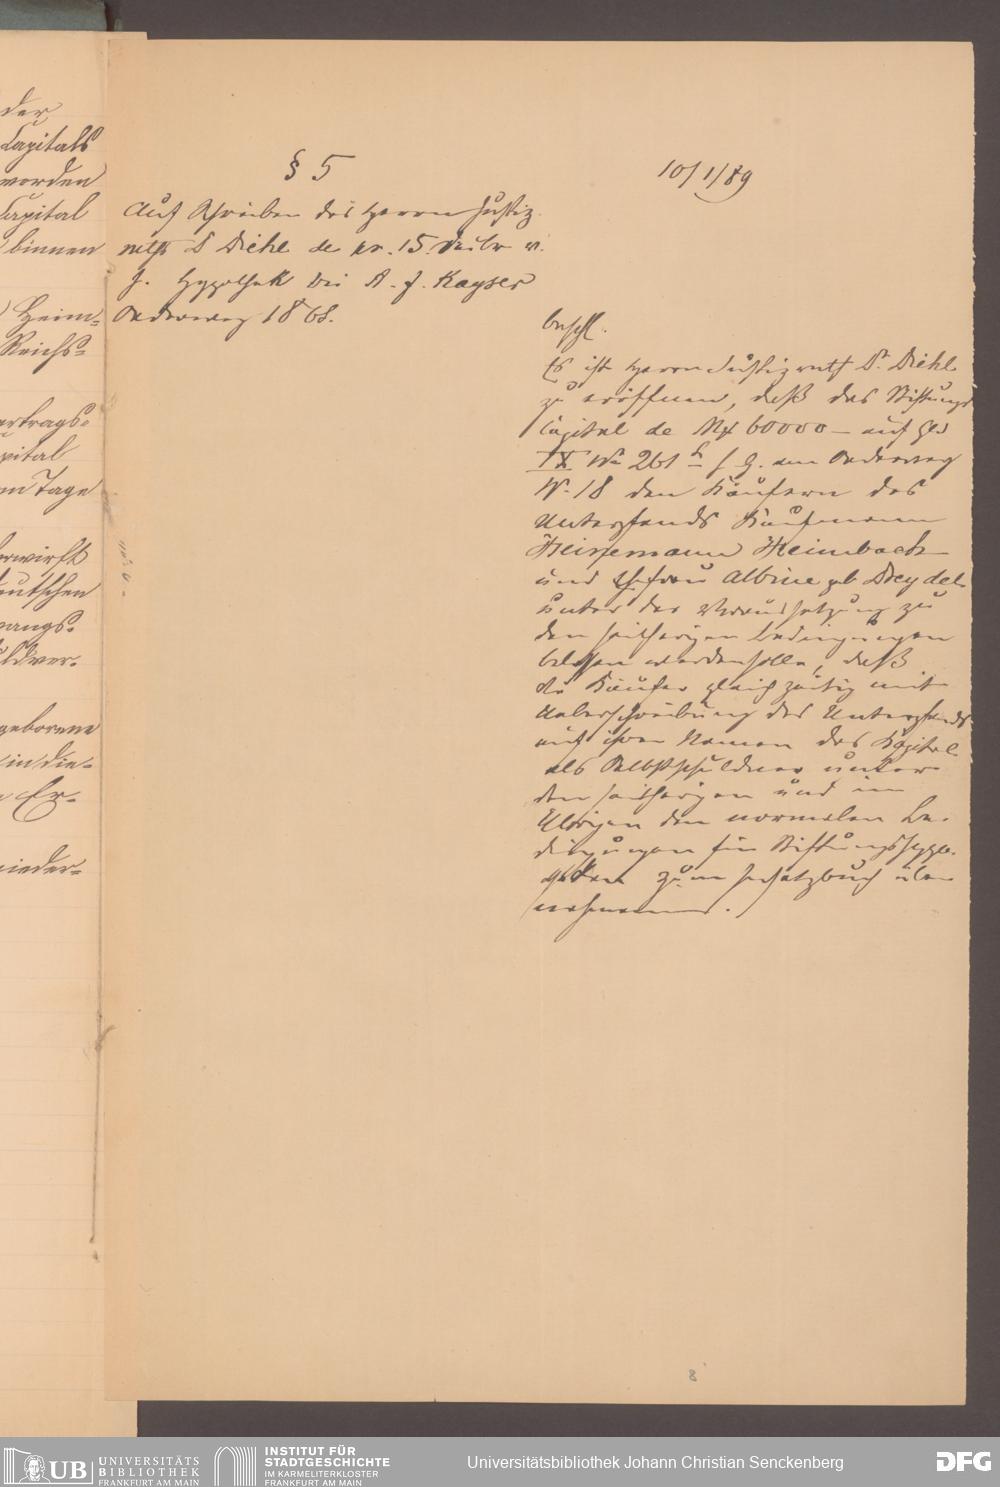 der
Capitals
worden
Capital
binnen
Heim-
Reichs-
ertrags-
pital
m Tage
erwirft
eutschen
gangs-
uldver-
geborene
in die-
Er-
nieder-
§ 5
10/1/89
Auf Schreiben des Herrn Justiz
raths Dr Diehl de pr. 15. v.
J. Hypothek bei A. J. Kayser
Oederweg 18
beschl.
Es ist Herrn Justizrath Dr. Diehl
zu eröffnen, daß das Stiftungs
Capital de Mk 60000 — auf Gew
IX No 261 am Oederweg
No. 18 den Käufern des
Unterpfands Kaufmann
Heimbach
und Ehefrau Albine geb Dreydel
unter der Voraussetzung zu
den seitherigen Bedingungen
belassen werden solle, daß
die Käufer gleichzeitig mit
Ueberschreibung des Unterpfands
auf ihren Namen das Kapital
als Selbstschuldner unter
den seitherigen und im
Übrigen den normalen Be-
dingungen für Stiftungshypo-
theken zum Insatzbuch über
nehmen.
8
UB UNIVERSITÄTS
BIBLIOTHEK
FRANKFURT AM MAIN
INSTITUT FÜR
STADTGESCHICHTE
IM KARMELITERKLOSTER
FRANKFURT AM MAIN
Universitätsbibliothek Johann Christian Senckenberg
DFG